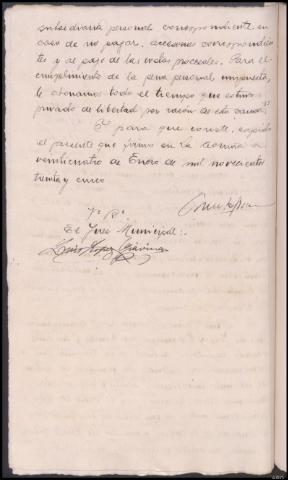 subsidiaria personal correspondiente en
caso de no pagar, accesorias correspondien
tes y al pago de las costas procesales. Para el
cumplimiento de la pena personal impuesta,
le abonamos todo el tiempo que estuvo
privado de libertad por razón de esta causa."
Y para que conste, expido
el presente que firmo en La Coruña a
veinticuatro de Enero de mil novecientos
treinta y cinco
Vº Bº
El Juez Municipal:
Luis López